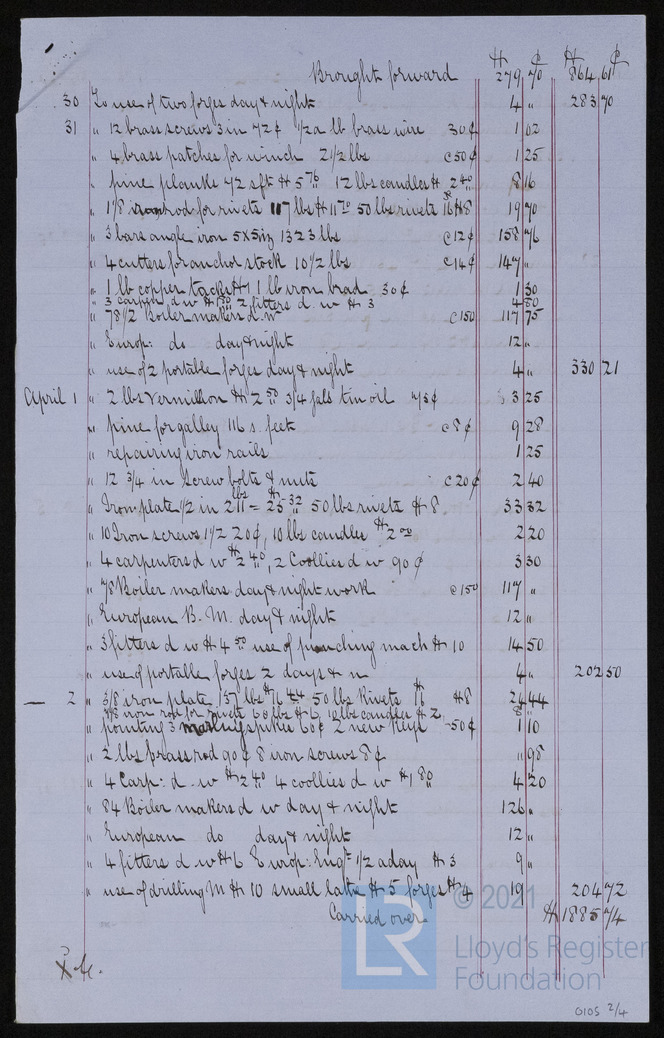 $ ¢ $ ¢
Brought forward 279 70 864 61
30 To use of two forges day & night 4 " 283 70
31 " 12 brass screws 3 in 72¢ 1/2 a lb brass wire 30¢ 1 02
" 4 brass patches for winch 2 1/2 lbs c50¢ 1 25
" pine planks 72 sft $5 76 12 lbs candles $2 40 8 16
" 1 1/8 iron rod for rivets 117 lbs $11 70 50 lbs rivets $8 19 70
" 3 bars angle iron 5x5 1323 lbs c12¢ 158 76
" 4 cutters for anchor stock 10 1/2 lbs c14¢ 1 47
" 1 lb copper tacks $1 1 lb iron brad 30¢ 1 30
" 3 carprs d w 2 fitters d w $3 4 80
" 78 1/2 Boiler makers d w c150 117 75
" Europ: do day & night 12 "
" use of 2 portable forges day & night 4 " 330 21
April 1 " 2 lbs Vermillion $2 50 3/4 gals tin oil 75¢ 3 25
" pine for galley 116 s. feet c8¢ 9 28
" repairing iron rails 1 25
" 12 3/4 in Screw bolts & nuts c20¢ 2 40
" Iron plate 1/2 in 211 lbs = $25 32 50 lbs rivets $8 33 32
" 10 Iron screws 1 1/2 20¢, 10 lbs candles $2 00 2 20
" 4 carpenters d w $2 40, 2 Coollies d w 90¢ 3 30
" 78 Boiler makers day & night work c150 117 "
" European B. M. day & night 12 "
" 3 fitters d w $4 50 use of punching mach $10 14 50
" use of portable forges 2 days & n 4 " 202 50
— 2 " 3/8 iron plate 137 lbs $16 44 50 lbs Rivets $8 24 44
" 7/8 iron rod for rivets 60 lbs $6 10 lbs candles $2 8 "
" pointing 3 marling spikes 60¢ 2 new keys 50¢ 1 10
" 2 lbs brass rod 90¢ 8 iron screws 8¢ " 98
" 4 Carp: d. w $2 40 4 coollies d w $1 80 4 20
" 84 Boiler makers d w day & night 126 "
" European do day & night 12 "
" 4 fitters d w $6 Europ: Engr 1/2 a day $3 9 "
" use of drilling M $10 small lathe $5 forges $4 19 204 72
Carried over $ 1885 74
© 2021
LR
Lloyd's Register
Foundation
0105 2/4